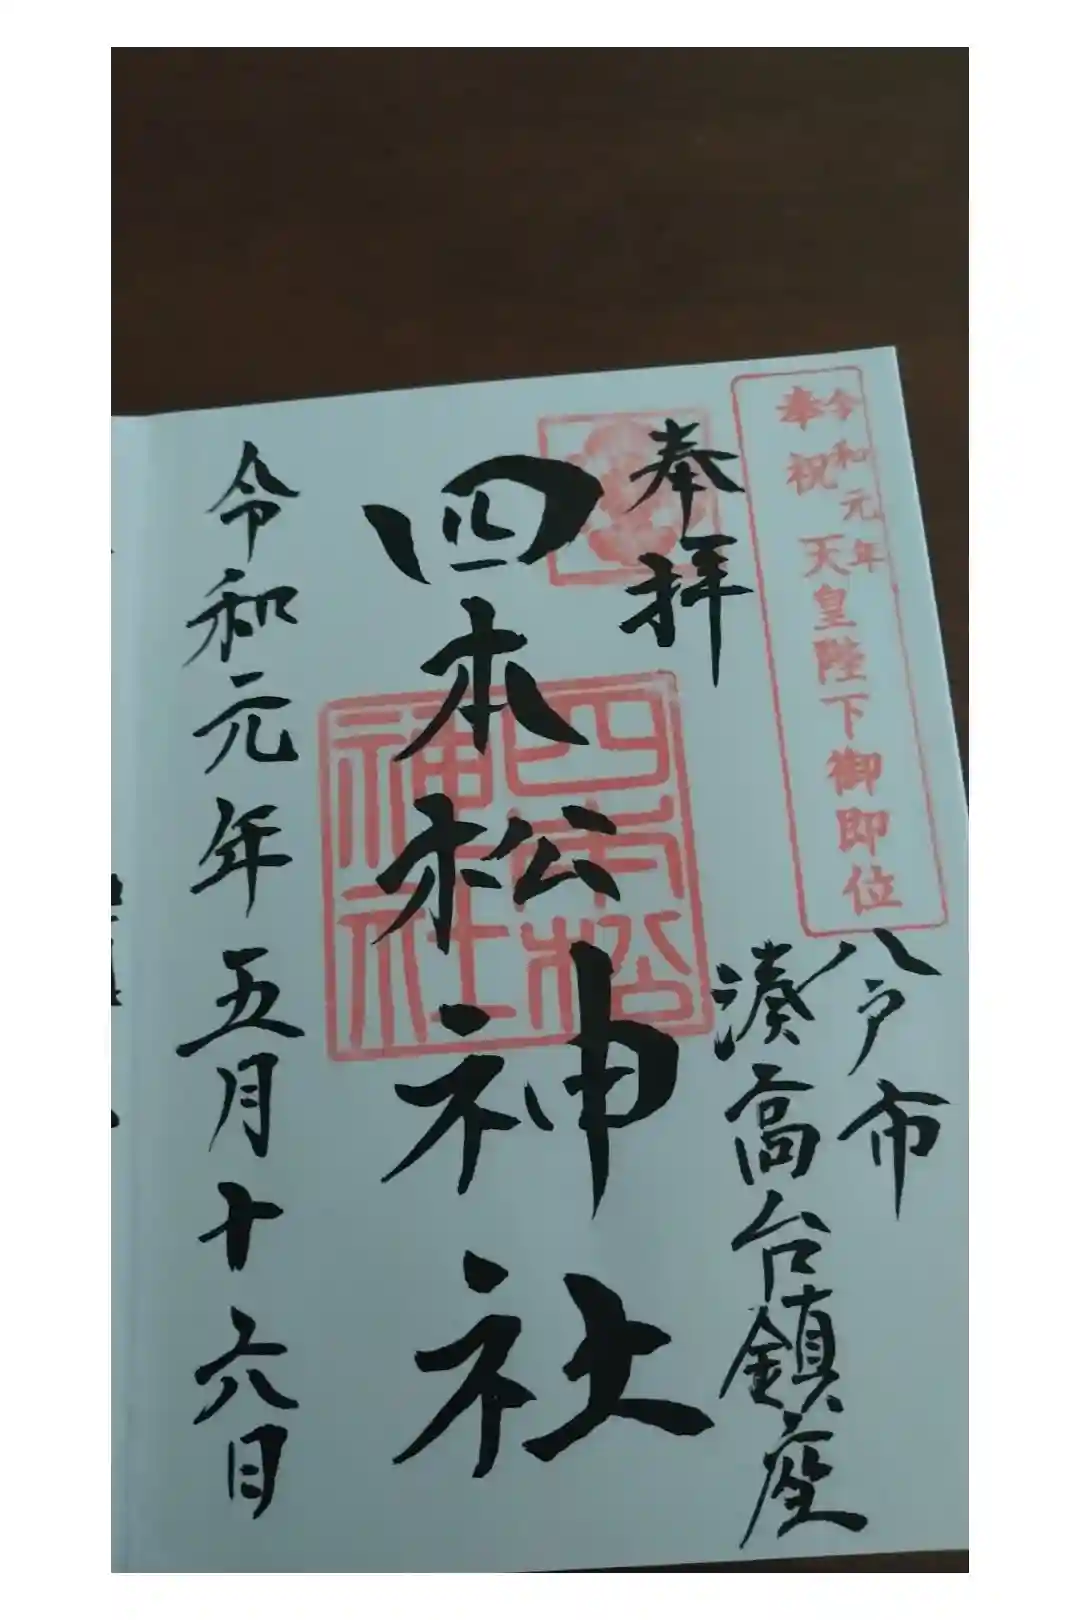 令和元年
奉祝 天皇陛下御即位
八戸市
湊高台鎮座
奉拝
四本松神社
四本松
神社
令和元年五月十六日